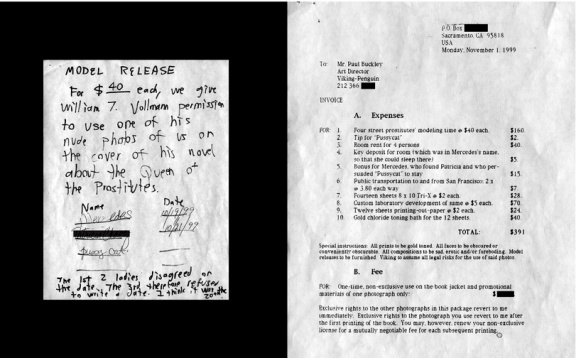 MODEL RELEASE
For $40 each, we give
William T. Vollmann permission
to use one of his
nude photos of us on
the cover of his novel
about the Queen of
the Prostitutes.
Name Date
Mercedes 10/19/99
10/21/99
The 1st 2 ladies disagreed on
the date. The 3rd therefore refused
to write a date. I think it was
P.O. Box
Sacramento, CA 95818
USA
Monday, November 1, 1999
To: Mr. Paul Buckley
Art Director
Viking-Penguin
212 366
INVOICE
A. Expenses
FOR: 1. Four street prostitutes' modeling time @ $40 each. $160
2. Tip for "Pussycat" $2.
3. Room rent for 4 persons $40.
4. Key deposit for room (which was in Mercedes's name,
so that she could sleep there) $5.
5. Bonus for Mercedes, who found Patricia and who per-
suaded "Pussycat" to stay $15.
6. Public transportation to and from San Francisco: 2 x
@ 3.80 each way $7.
7. Fourteen sheets 8 x 10 Tri-X @ $2 each. $28.
8. Custom laboratory development of same @ $5 each. $70.
9. Twelve sheets printing-out-paper @ $2 each. $24.
10. Gold chloride toning bath for the 12 sheets. $40.
TOTAL: $391
Special instructions: All prints to be gold toned. All faces to be obscured or
conveniently obscurable. All compositions to be sad, erotic and/or foreboding. Model
releases to be furnished. Viking to assume all legal risks for the use of said photos.
B. Fee
FOR: One-time, non-exclusive use on the book jacket and promotional
materials of one photograph only: $
Exclusive rights to the other photographs in this package revert to me
immediately. Exclusive rights to the photograph you use revert to me after
the first printing of the book. You may, however, renew your non-exclusive
license for a mutually negotiable fee for each subsequent printing.